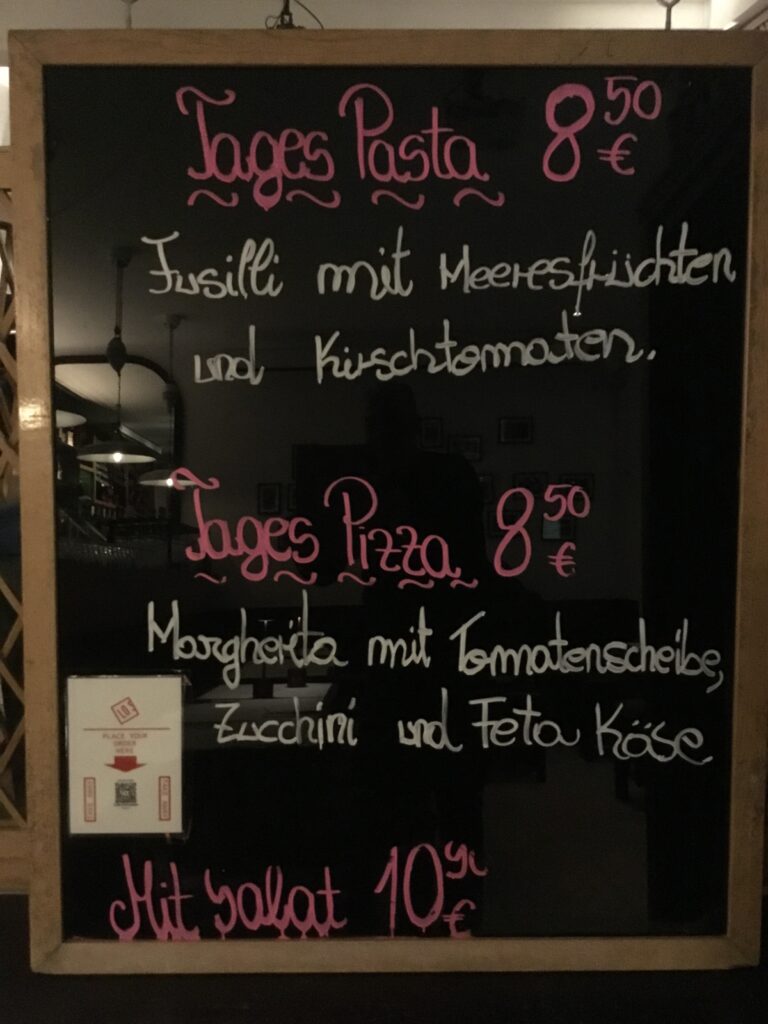 Tages Pasta 8 50 €
Fusilli mit Meeresfrüchten
und Kirschtomaten.
Tages Pizza 8 50 €
Margherita mit Tomatenscheibe,
Zucchini und Feta Käse
PLACE YOUR
ORDER
HERE
Mit Salat 10 90 €